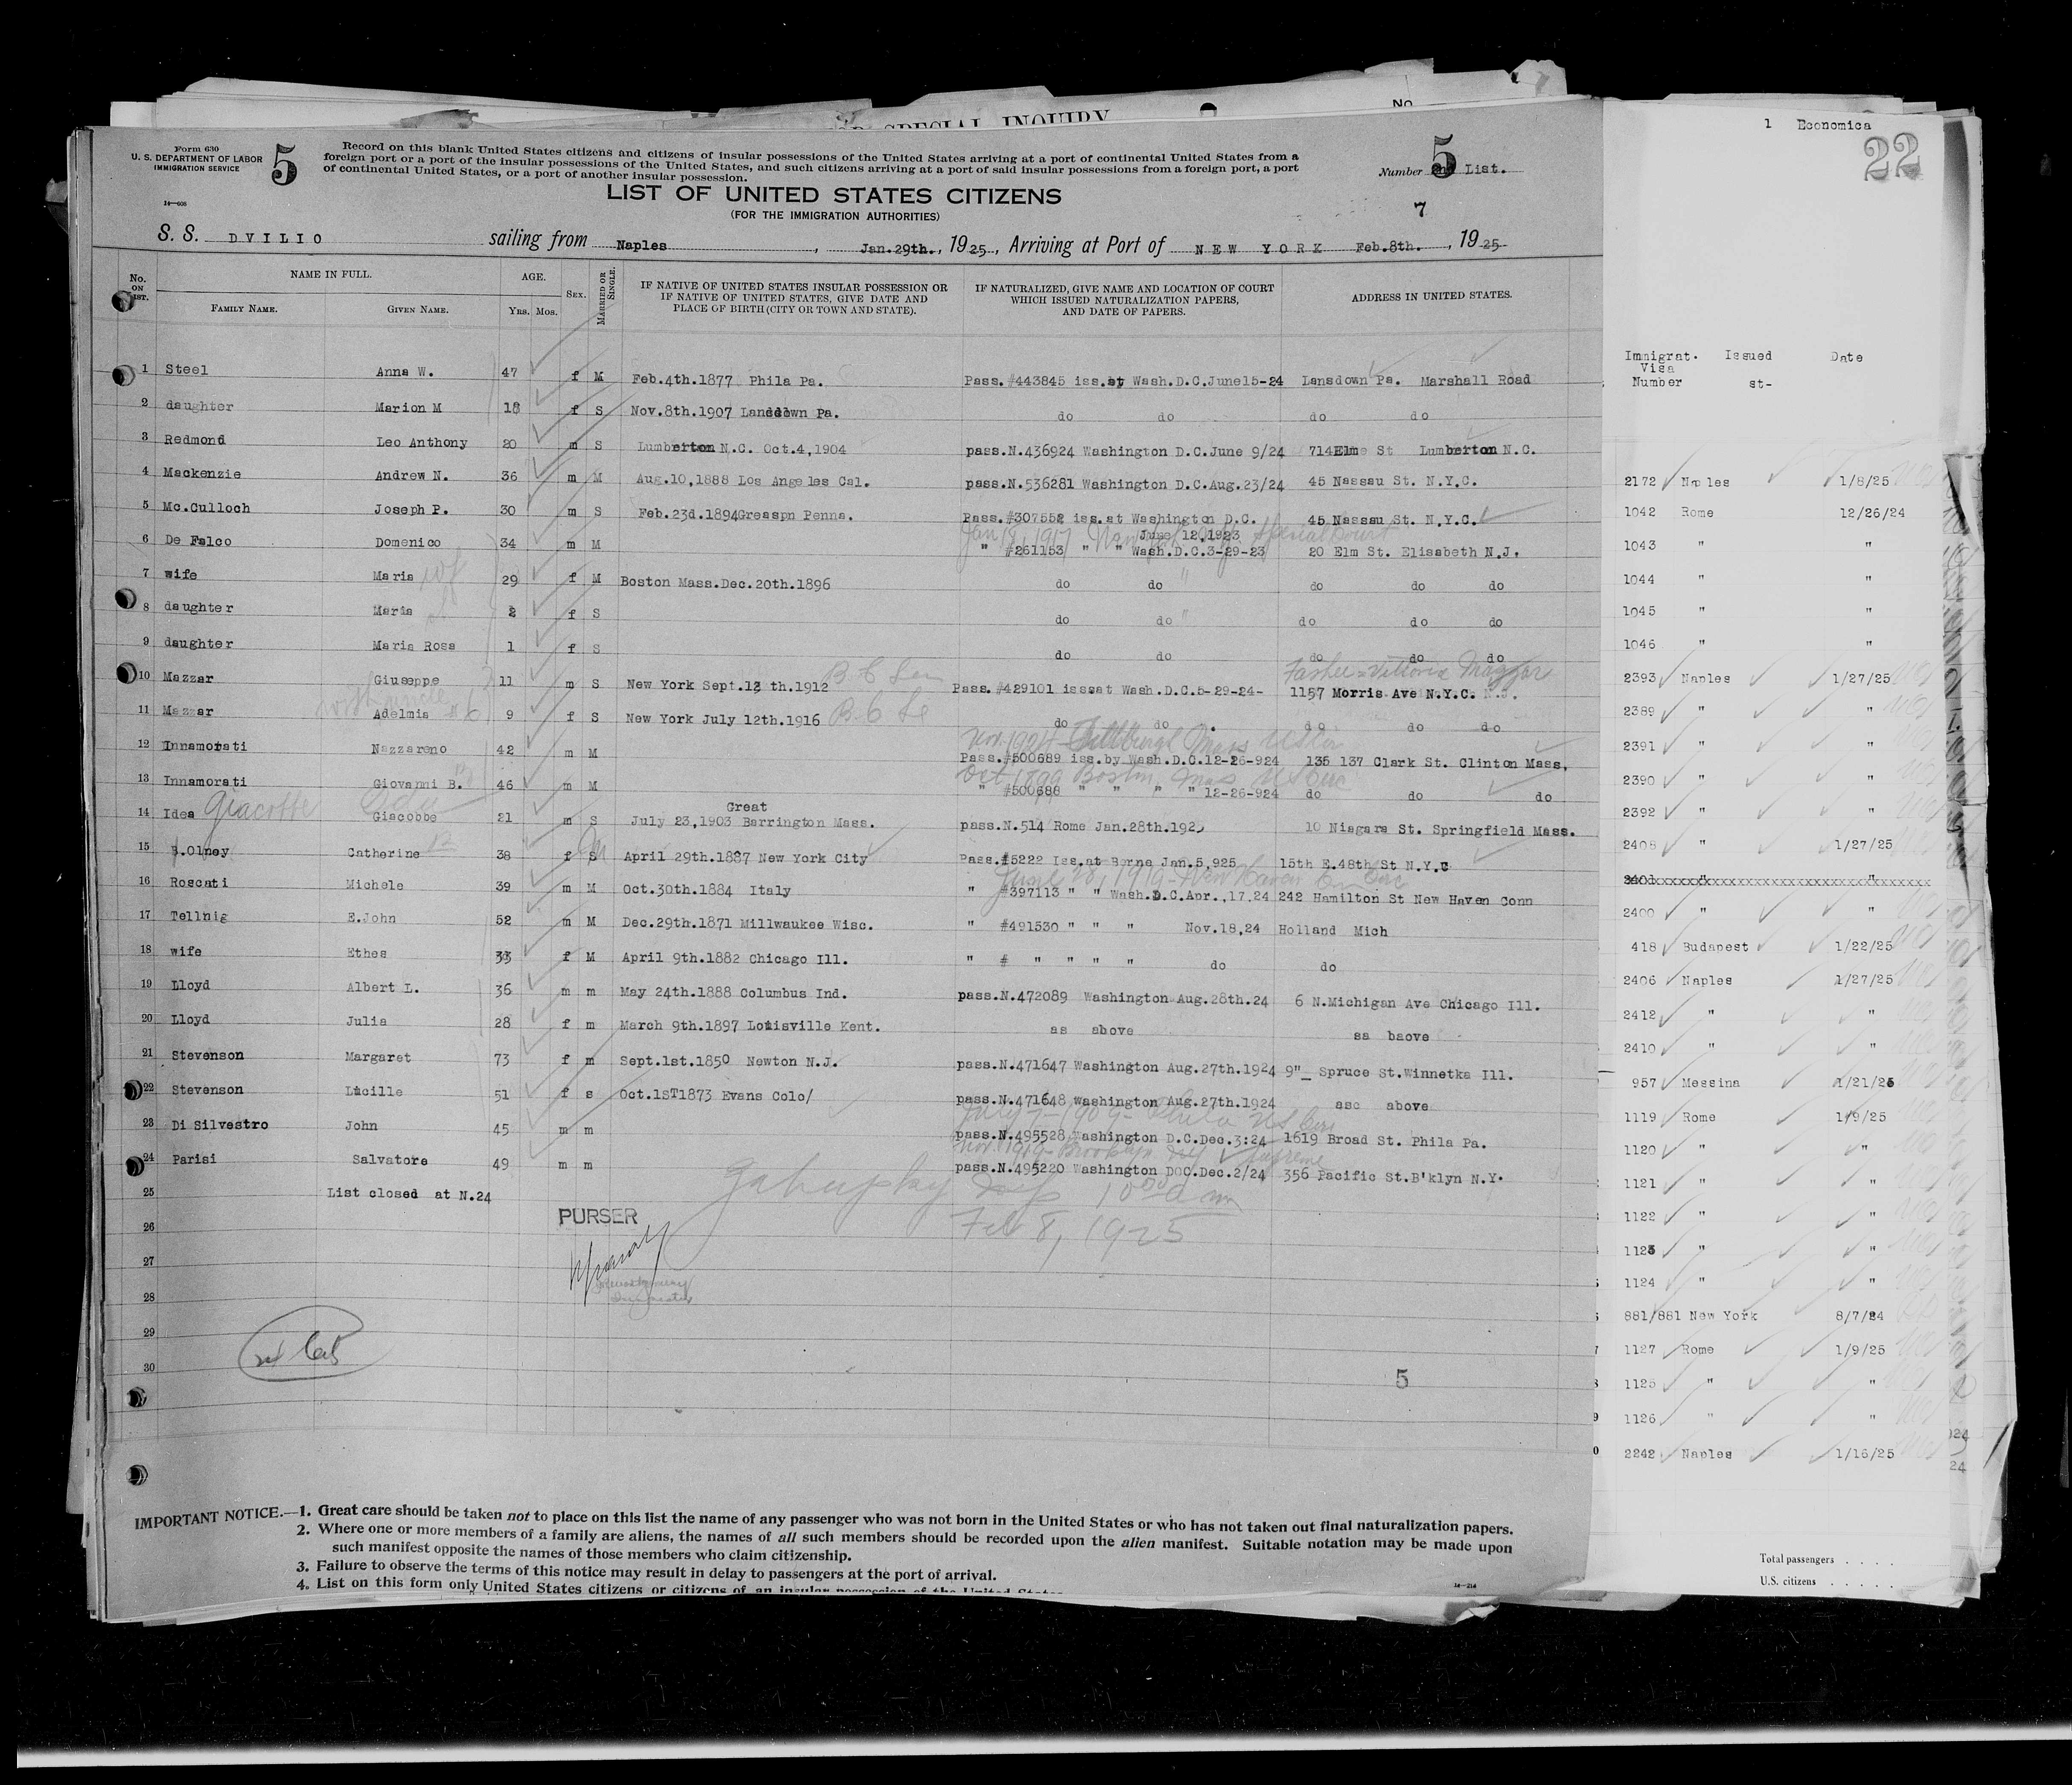 No.
FOR SPECIAL INQUIRY
1 Economica
22
Form 630
U. S. DEPARTMENT OF LABOR
IMMIGRATION SERVICE
14—608
5
Record on this blank United States citizens and citizens of insular possessions of the United States arriving at a port of continental United States from a
foreign port or a port of the insular possessions of the United States, and such citizens arriving at a port of said insular possessions from a foreign port, a port
of continental United States, or a port of another insular possession.
Number 5 List.
LIST OF UNITED STATES CITIZENS
(FOR THE IMMIGRATION AUTHORITIES)
7
S. S. DVILIO sailing from Naples, Jan.29th., 1925, Arriving at Port of NEW YORK Feb.8th., 1925
No. ON LIST.
NAME IN FULL.
FAMILY NAME. GIVEN NAME.
AGE.
YRS. MOS.
SEX.
MARRIED OR SINGLE.
IF NATIVE OF UNITED STATES INSULAR POSSESSION OR
IF NATIVE OF UNITED STATES, GIVE DATE AND
PLACE OF BIRTH (CITY OR TOWN AND STATE).
IF NATURALIZED, GIVE NAME AND LOCATION OF COURT
WHICH ISSUED NATURALIZATION PAPERS,
AND DATE OF PAPERS.
ADDRESS IN UNITED STATES.
1 Steel Anna W. 47 f M Feb.4th.1877 Phila Pa. Pass.#443845 iss.at Wash.D.C.June15-24 Lansdown Pa. Marshall Road
2 daughter Marion M 18 f S Nov.8th.1907 Landdown Pa. do do do do
3 Redmond Leo Anthony 20 m S Lumberton N.C. Oct.4,1904 pass.N.436924 Washington D.C.June 9/24 714Elm St Lumberton N.C.
4 Mackenzie Andrew N. 36 m M Aug.10,1888 Los Angeles Cal. pass.N.536281 Washington D.C.Aug.23/24 45 Nassau St. N.Y.C.
5 Mc.Culloch Joseph P. 30 m S Feb.23d.1894Greaspn Penna. Pass.#307552 iss.at Washington D.C. 45 Nassau St. N.Y.C.
June 12,1923
6 De Falco Domenico 34 m M " #261153 " " Wash.D.C.3-29-23 20 Elm St. Elisabeth N.J.
7 wife Maria 29 f M Boston Mass.Dec.20th.1896 do do do do do
8 daughter Maria 2 f S do do do do do
9 daughter Maria Rosa 1 f S do do do do do
B C
10 Mazzar Giuseppe 11 m S New York Sept.12 th.1912 Pass.#429101 issat Wash.D.C.5-29-24- 1157 Morris Ave N.Y.C. N.J.
11 Mazzar Adelmia 9 f S New York July 12th.1916 B.C do do do do do
12 Innamorati Nazzareno 42 m M Pass.#500689 iss.by Wash.D.C.12-26-924 135 137 Clark St. Clinton Mass.
Oct. 1899 Boston, Mas
13 Innamorati Giovanni B. 46 m M " #500688 " " " " 12-26-924 do do do
Great
14 Idea Giacobbe 21 m S July 23,1903 Barrington Mass. pass.N.514 Rome Jan.28th.192 10 Niagara St. Springfield Mass.
15 B.Olney Catherine 38 f S April 29th.1887 New York City Pass.#5222 Iss.at Berne Jan.5,925 15th E.48th St N.Y.C
16 Roscati Michele 39 m M Oct.30th.1884 Italy " #397113 " " Wash.D.C.Apr.,17,24 242 Hamilton St New Haven Conn
17 Tellnig E.John 52 m M Dec.29th.1871 Millwaukee Wisc. " #491530 " " " Nov.18,24 Holland Mich
18 wife Ethes 33 f M April 9th.1882 Chicago Ill. " # " " " " do do
19 Lloyd Albert L. 36 m m May 24th.1888 Columbus Ind. pass.N.472089 Washington Aug.28th.24 6 N.Michigan Ave Chicago Ill.
20 Lloyd Julia 28 f m March 9th.1897 Louisville Kent. as above as baove
21 Stevenson Margaret 73 f m Sept.1st.1850 Newton N.J. pass.N.471647 Washington Aug.27th.1924 9"_ Spruce St.Winnetka Ill.
22 Stevenson Lucille 51 f s Oct.1ST1873 Evans Colo/ pass.N.471648 Washington Aug.27th.1924 asc above
23 Di Silvestro John 45 m m pass.N.495528 Washington D.C.Dec.3:24 1619 Broad St. Phila Pa.
24 Parisi Salvatore 49 m m pass.N.495220 Washington DOC.Dec.2/24 356 Pacific St.B'klyn N.Y.
25 List closed at N.24
10 00 a m
Feb 8, 1925
PURSER
26
27
28
29
30
5
IMPORTANT NOTICE.—1. Great care should be taken not to place on this list the name of any passenger who was not born in the United States or who has not taken out final naturalization papers.
2. Where one or more members of a family are aliens, the names of all such members should be recorded upon the alien manifest. Suitable notation may be made upon
such manifest opposite the names of those members who claim citizenship.
3. Failure to observe the terms of this notice may result in delay to passengers at the port of arrival.
4. List on this form only United States citizens or citizens of an insular possession of the United States
14—214
Immigrat. Issued Date
Visa
Number st-
2172 Naples 1/8/25
1042 Rome 12/26/24
1043 " "
1044 " "
1045 " "
1046 " "
2393 Naples 1/27/25
2389 " "
2391 " "
2390 " "
2392 " "
2408 " 1/27/25
2400 " "
418 Budapest 1/22/25
2406 Naples 1/27/25
2412 " "
2410 " "
957 Messina 1/21/25
1119 Rome 1/9/25
1120 " "
1121 " "
1122 " "
1123 " "
1124 " "
881/881 New York 8/7/24
1127 Rome 1/9/25
1125 " "
1126 " "
2242 Naples 1/16/25
Total passengers . . . .
U.S. citizens . . . . .